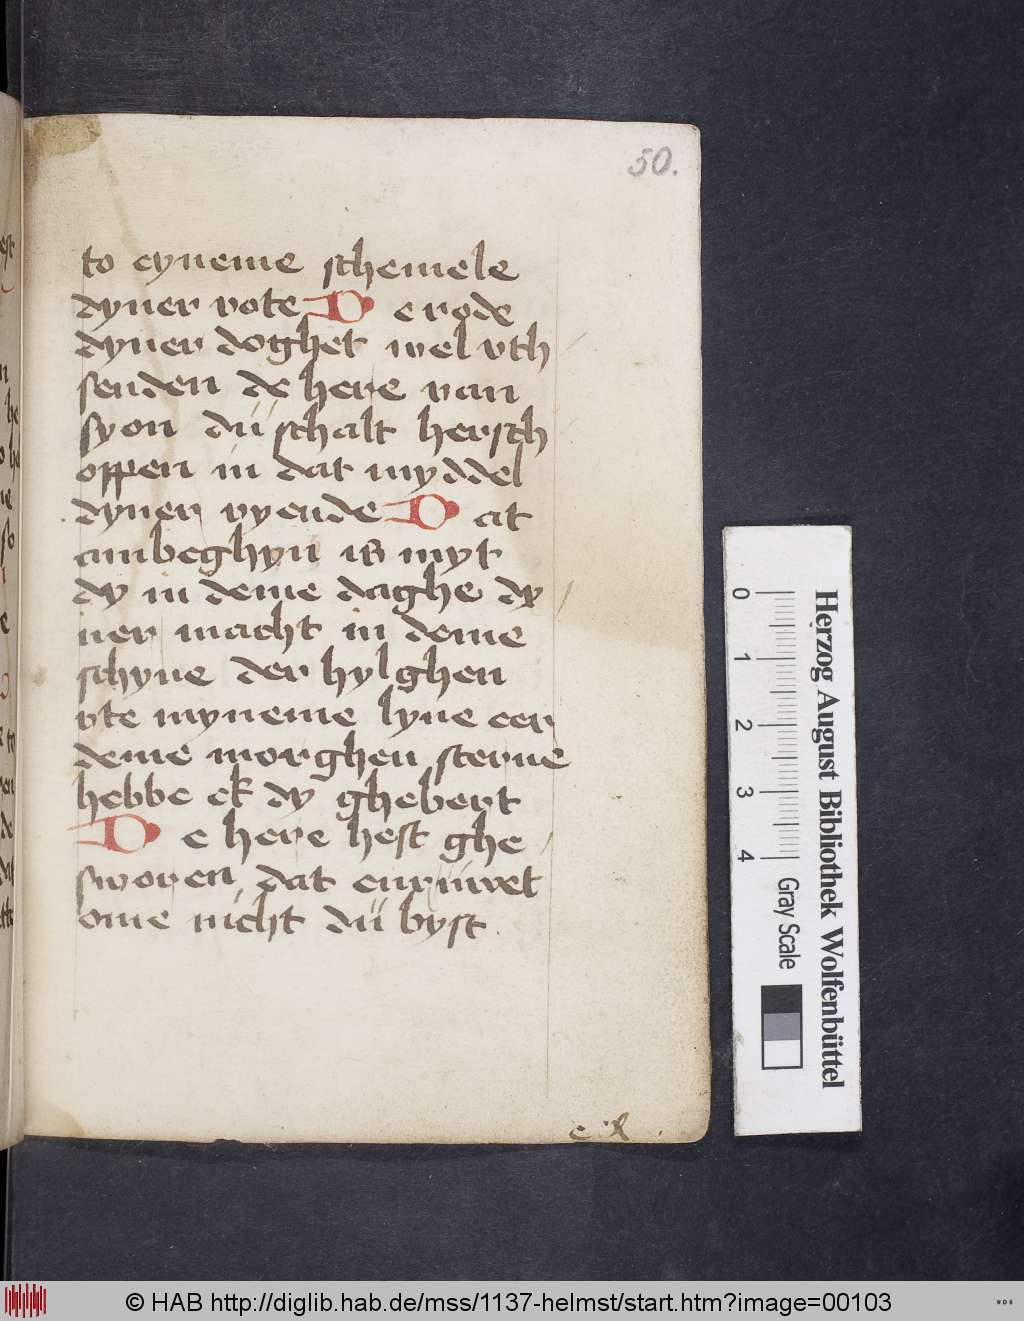 50.
to eyneme schemele
dyner vote D e rode
dyner doghet wel vth
senden de here van
syon dü schalt hersch
oppen in dat myddel
dyner vyende D at
anbeghyn is myt
dy in deme daghe dy
ner macht in deme
schyne der hylghen
vte myneme lyue eer
deme morghen sterne
hebbe ek dy ghebert
D e here heft ghe
sworen dat enrüwet
ome nicht dü byst
Herzog August Bibliothek Wolfenbüttel
0 1 2 3 4 Gray Scale
© HAB http://diglib.hab.de/mss/1137-helmst/start.htm?image=00103